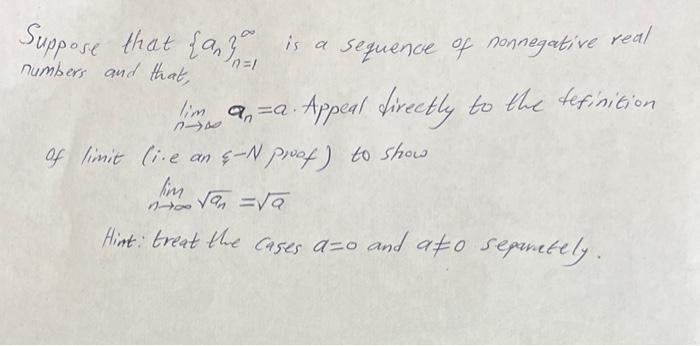 Suppose that {aₙ}∞ₙ₌₁ is a sequence of nonnegative real
numbers and that,
lim n→∞ aₙ = a. Appeal directly to the definition
of limit (i.e an ε-N proof) to show
lim n→∞ √aₙ = √a
Hint: treat the cases a=0 and a≠0 separately.